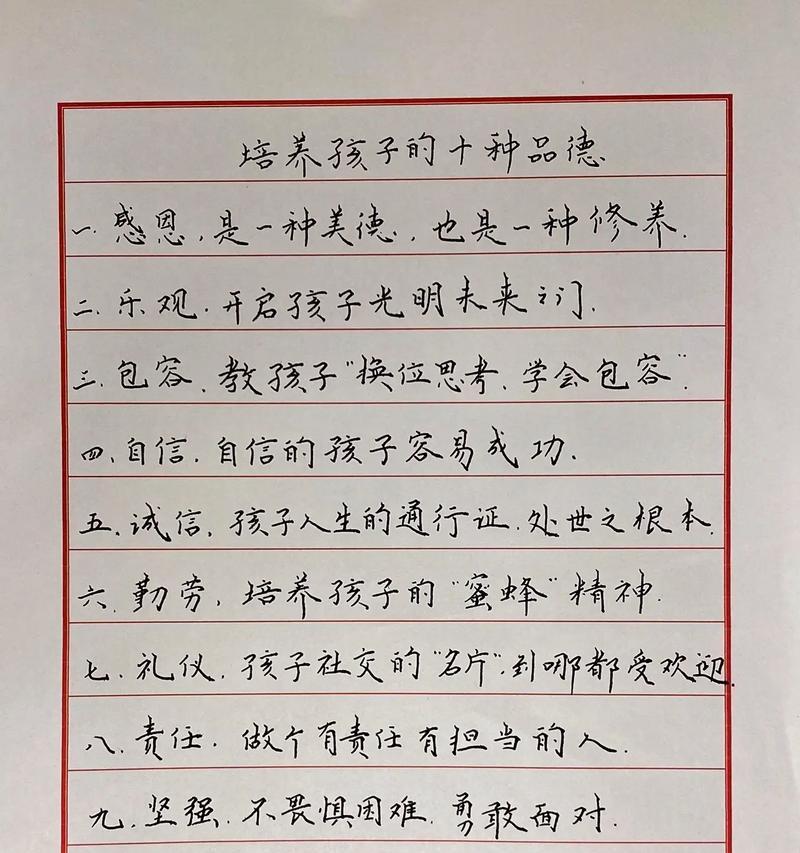 培养孩子的十种品德
一.感恩,是一种美德,也是一种修养.
二.乐观.开启孩子光明未来之门.
三.包容.教孩子"换位思考.学会包容".
四.自信.自信的孩子容易成功.
五.诚信.孩子人生的通行证.处世之根本.
六.勤劳,培养孩子的"蜜蜂"精神.
七.礼仪.孩子社交的"名片".到哪都受欢迎.
八.责任.做个有责任有担当的人.
九.坚强.不畏惧困难.勇敢面对.